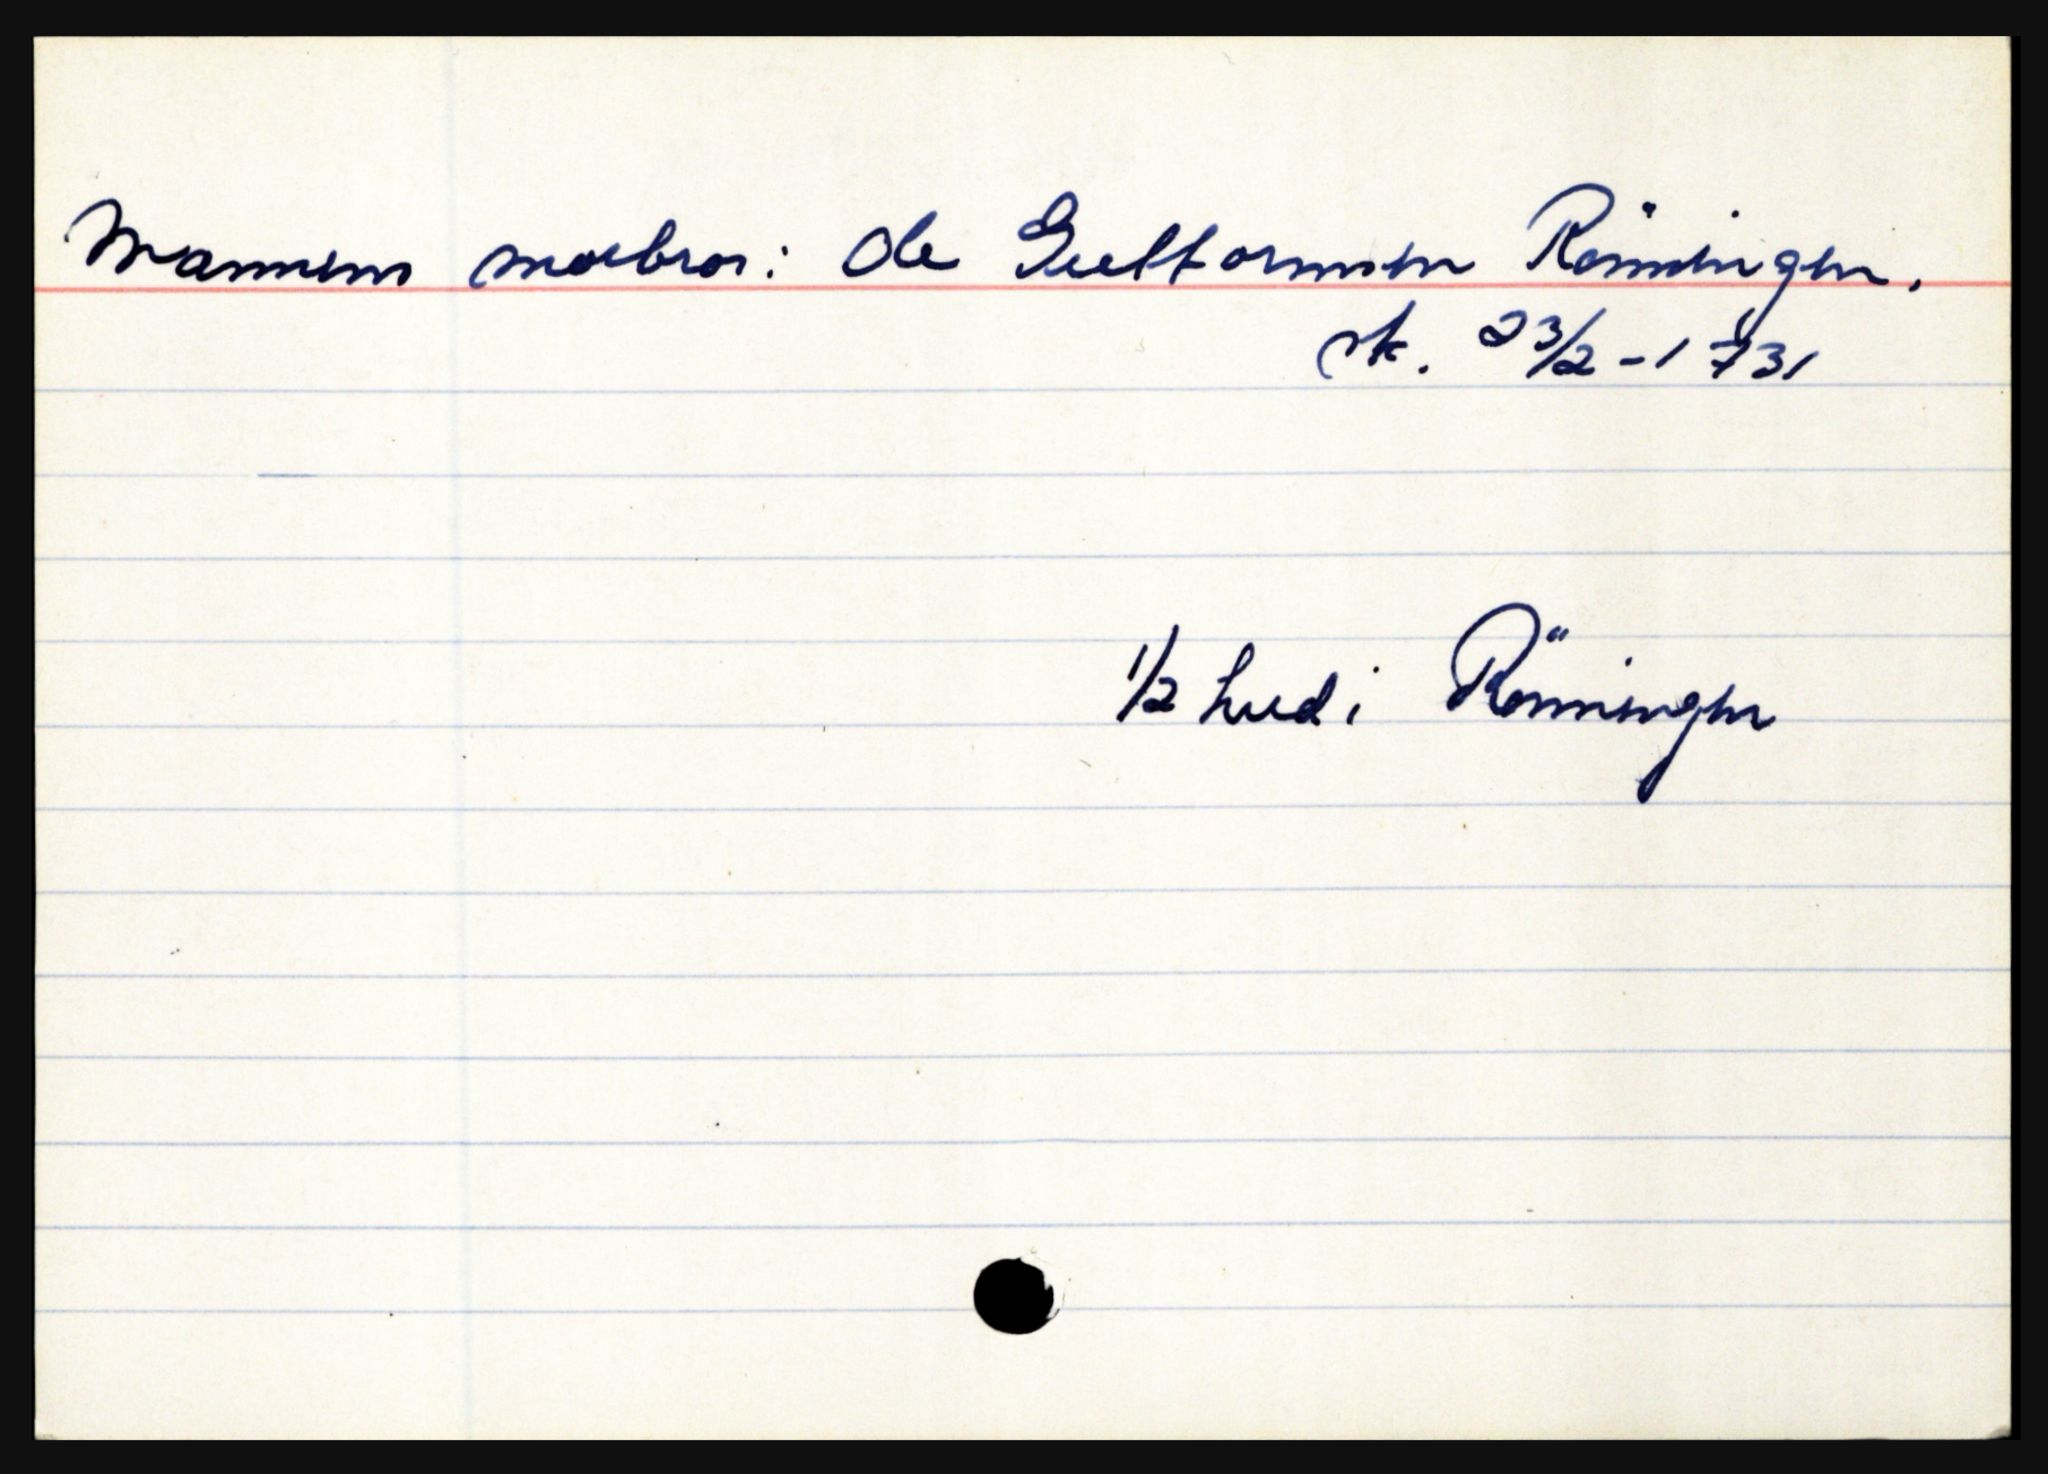 Mannens morbror: Ole Gulltormsen Rönningen.
sk. 23/2-1731
1/2 hud i Rönningen